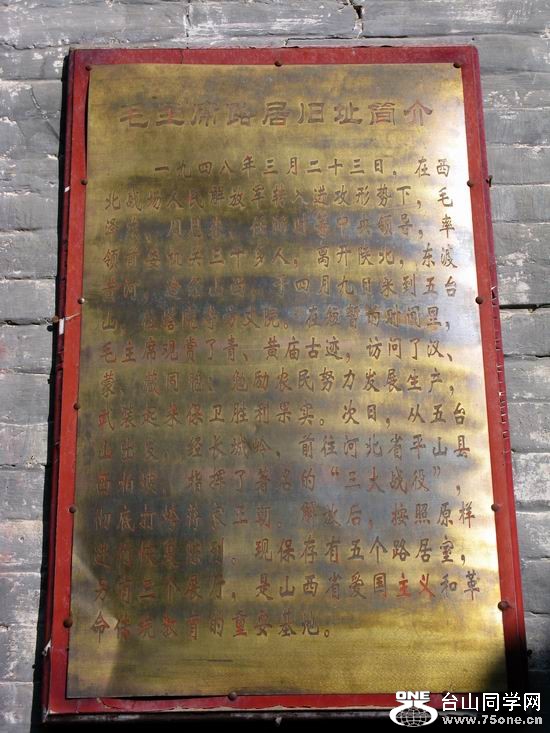 毛主席路居旧址简介
一九四八年三月二十三日，在西
北战场人民解放军转入进攻形势下，毛
泽东、周恩来、任弼时等中央领导，率
领前委机关二十多人，离开陕北，东渡
黄河，途经山西，于四月九日来到五台
山，在塔院寺方丈院。在短暂的时间里，
毛主席观赏了青、黄庙古迹，访问了汉、
蒙、藏同胞、勉励农民努力发展生产，
武装起来保卫胜利果实。次日，从五台
山出发，经长城岭，前往河北省平山县
西柏坡，指挥了著名的“三大战役”，
彻底打垮蒋家王朝。解放后，按照原样
进行恢复陈列。现保存有五个路居室，
另有三个展厅，是山西省爱国主义和革
命传统教育的重要基地。
ONE
台山同学网
www.75one.cn